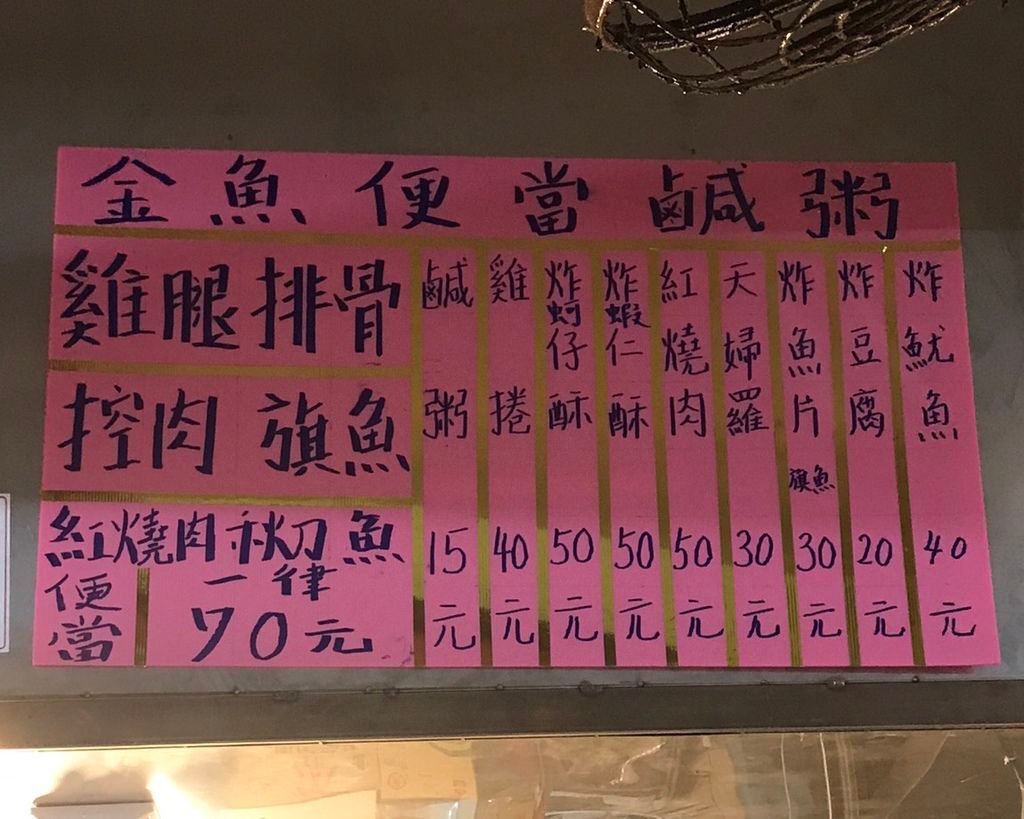 金魚便當鹹粥
雞腿排骨
控肉 旗魚
紅燒肉秋刀魚
便當
一律
70元
鹹粥 15元
雞捲 40元
炸蚵仔酥 50元
炸蝦仁酥 50元
紅燒肉 50元
天婦羅 30元
炸魚片 旗魚 30元
炸豆腐 20元
炸魷魚 40元